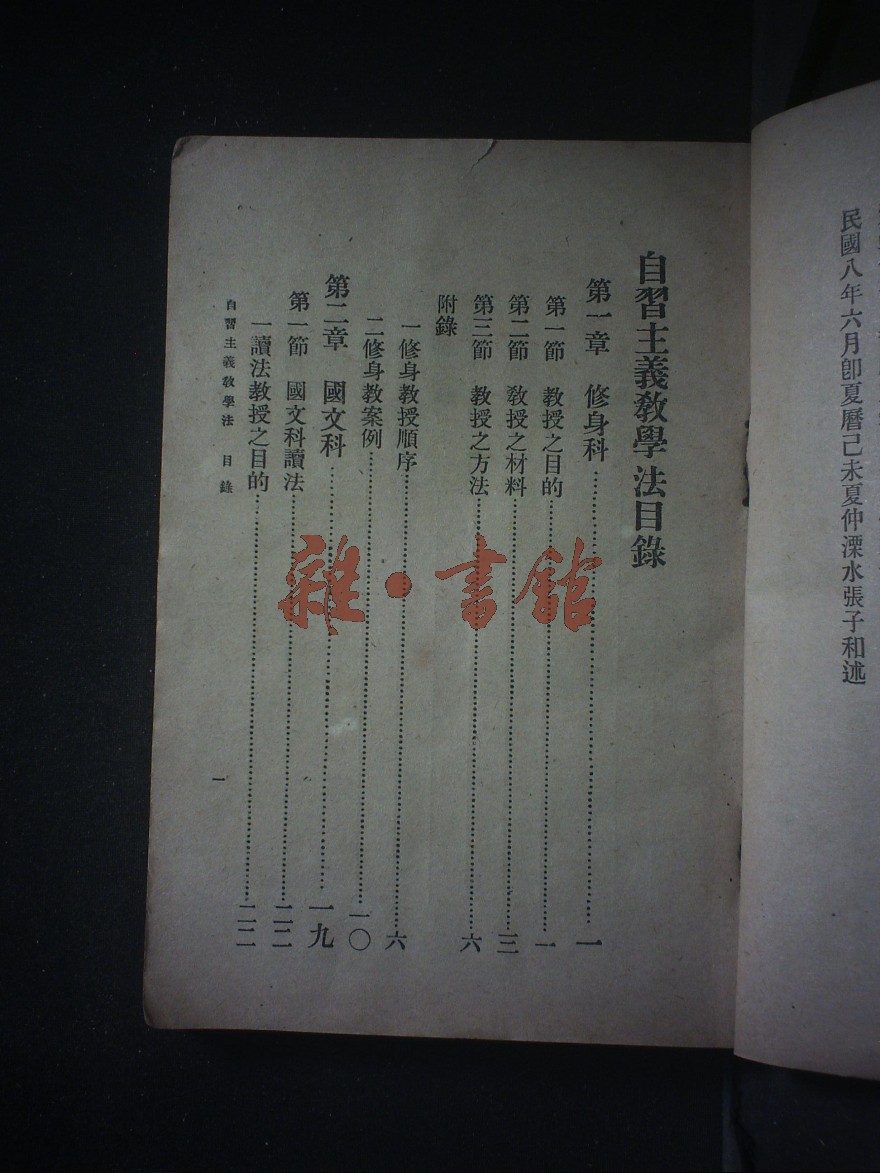 民國八年六月卽夏曆己未夏仲溧水張子和述
自習主義敎學法目錄
第一章 修身科 一
第一節 敎授之目的 一
第二節 敎授之材料 三
第三節 敎授之方法 六
附錄
一修身敎授順序 六
二修身敎案例 一〇
第二章 國文科 一九
第一節 國文科讀法 二二
一讀法敎授之目的 二二
自習主義敎學法 目錄
一
雜·書館